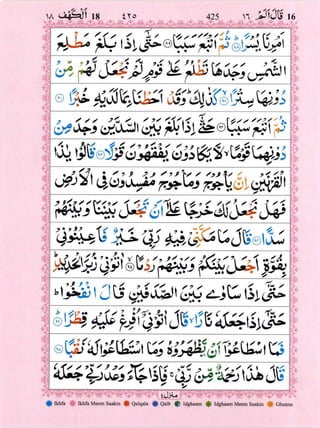 ١٨ اَلْكَهْف 18 ٤٢٥ 425 ١٦ قَالَ اَلَمْ 16
اَمْرِنَا يُسْرًا ﴿٨٨﴾ ثُمَّ اَتْبَعَ سَبَبًا ﴿٨٩﴾ حَتّٰٓى اِذَا بَلَغَ مَطْلِعَ
الشَّمْسِ وَجَدَهَا تَطْلُعُ عَلٰى قَوْمٍ لَّمْ نَجْعَلْ لَّهُمْ مِّنْ
دُوْنِهَا سِتْرًا ﴿٩٠﴾ كَذٰلِكَ وَقَدْ اَحَطْنَا بِمَا لَدَيْهِ خُبْرًا ﴿٩١﴾
ثُمَّ اَتْبَعَ سَبَبًا ﴿٩٢﴾ حَتّٰٓى اِذَا بَلَغَ بَيْنَ السَّدَّيْنِ وَجَدَ مِنْ
دُوْنِهِمَا قَوْمًا لَّا يَكَادُوْنَ يَفْقَهُوْنَ قَوْلًا ﴿٩٣﴾ قَالُوْا يٰذَا
الْقَرْنَيْنِ اِنَّ يَاْجُوْجَ وَمَاْجُوْجَ مُفْسِدُوْنَ فِى الْاَرْضِ
فَهَلْ نَجْعَلُ لَكَ خَرْجًا عَلٰٓى اَنْ تَجْعَلَ بَيْنَنَا وَبَيْنَهُمْ
سَدًّا ﴿٩٤﴾ قَالَ مَا مَكَّنِّىْ فِيْهِ رَبِّىْ خَيْرٌ فَاَعِيْنُوْنِىْ
بِقُوَّةٍ اَجْعَلْ بَيْنَكُمْ وَبَيْنَهُمْ رَدْمًا ﴿٩٥﴾ اٰتُوْنِىْ زُبَرَ الْحَدِيْدِ
حَتّٰٓى اِذَا سَاوٰى بَيْنَ الصَّدَفَيْنِ قَالَ انْفُخُوْا
حَتّٰٓى اِذَا جَعَلَهٗ نَارًا قَالَ اٰتُوْنِىْٓ اُفْرِغْ عَلَيْهِ قِطْرًا ﴿٩٦﴾
فَمَا اسْطَاعُوْٓا اَنْ يَّظْهَرُوْهُ وَمَا اسْتَطَاعُوْا لَهٗ نَقْبًا ﴿٩٧﴾
قَالَ هٰذَا رَحْمَةٌ مِّنْ رَّبِّىْ فَاِذَا جَآءَ وَعْدُ رَبِّىْ جَعَلَهٗ
منزل ٤
Ikhfa Ikhfa Meem Saakin Qalqala Qalb Idghaam Idghaam Meem Saakin Ghunna